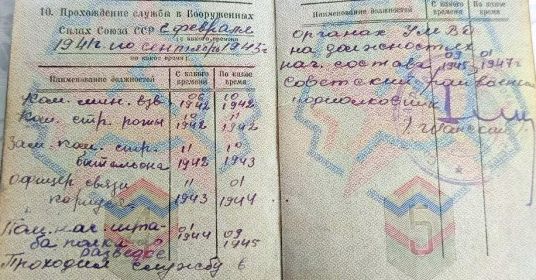 10. Прохождение службы в Вооруженных
Силах Союза ССР с февраля
(с какого времени)
1941г по сентябрь 1943г
по какое время)
Наименование должностей С какого времени По какое время
Ком. мин. взв. 06 1942 10 1942
Ком. стр. роты 10 1942 11 1942
Зам. ком. стр.
батальона 11 1942 10 1943
Офицер связи
корпуса 11 1943 01 1944
Пом. нач. шта-
ба полка 01 1944 09 1945
разведке
Проходил службу в
Наименование должностей С какого времени По какое время
органах УМВД
на должностях
нач. состава 09 1945 01 1947г
Советский райвоенком
подполковник